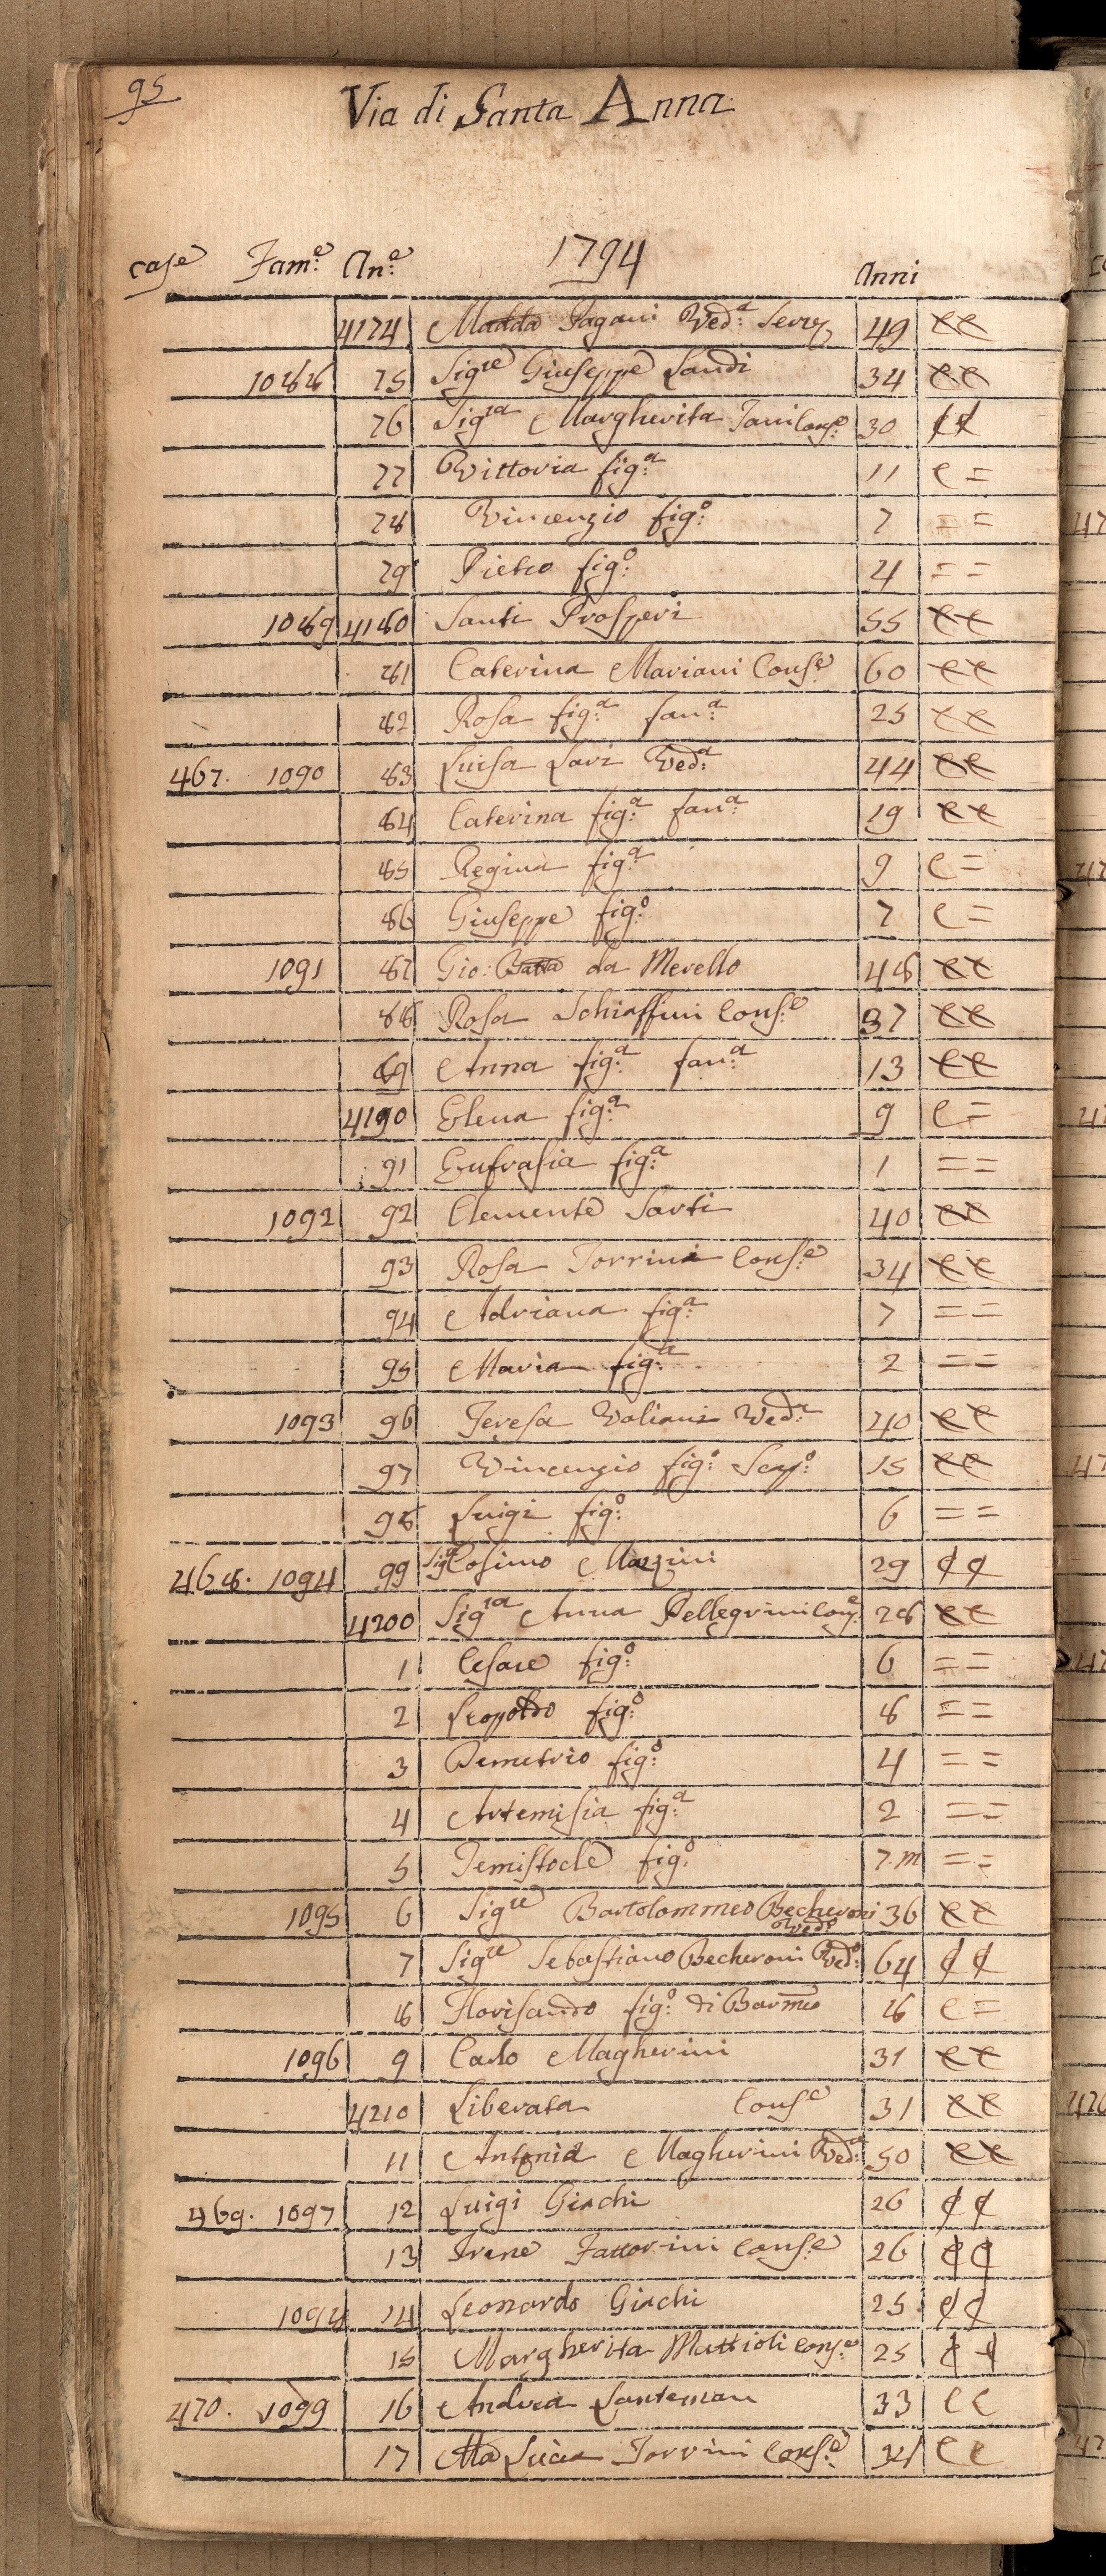 95
Via di Santa Anna
1794
case Fam:e An:e Anni
4174 Madda Pagani Ved:a Serv. 49 ee
1088 75 Sigre Giuseppe Landi 34 ee
76 Sigra Margherita Tani Cons:e 30 ee
77 Vittoria fig:a 11 e =
78 Vincenzio fig:o 7 = =
79 Pietro fig:o 4 = =
1089 4180 Santi Prosperi 55 ee
81 Caterina Mariani Cons:e 60 ee
82 Rosa fig:a fan:a 25 ee
467. 1090 83 Luisa Lavi Ved:a 44 ee
84 Caterina fig:a fan:a 19 ee
85 Regina fig:a 9 e =
86 Giuseppe fig:o 7 e =
1091 87 Gio: Batta da Merello 48 ee
88 Rosa Schiaffini Cons:e 37 ee
89 Anna fig:a fan:a 13 ee
4190 Elena fig:a 9 e =
91 Eufrasia fig:a 1 = =
1092 92 Clemente Sarti 40 ee
93 Rosa Torrini Cons:e 34 ee
94 Adriana fig:a 7 = =
95 Maria fig:a 2 = =
1093 96 Teresa Voliani Ved:a 40 ee
97 Vincenzio fig:o Scap:o 15 ee
98 Luigi fig:o 6 = =
468. 1094 99 Sigr Cosimo Mazzini 29 ee
4200 Sigra Anna Pellegrini Cons:e 28 ee
1 Cesare fig:o 6 = =
2 Leopoldo fig:o 8 = =
3 Demetrio fig:o 4 = =
4 Artemisia fig:a 2 = =
5 Temistocle fig:o 7.m = =
1095 6 Sigre Bartolommeo Becheroni Ved:o 36 ee
7 Sigre Sebastiano Becheroni Ved:o 64 ee
8 Florisando fig:o di Barmeo 8 e =
1096 9 Carlo Magherini 31 ee
4210 Liberata Cons:e 31 ee
11 Antonia Magherini Ved:a 50 ee
469. 1097 12 Luigi Giachi 26 ee
13 Irene Fattorini Cons:e 26 ee
1098 14 Leonardo Giachi 25 ee
15 Margherita Mattioli Cons:e 25 ee
470. 1099 16 Andrea Lanteman 33 ee
17 Ma Lucia Torrini Cons:e 34 ee